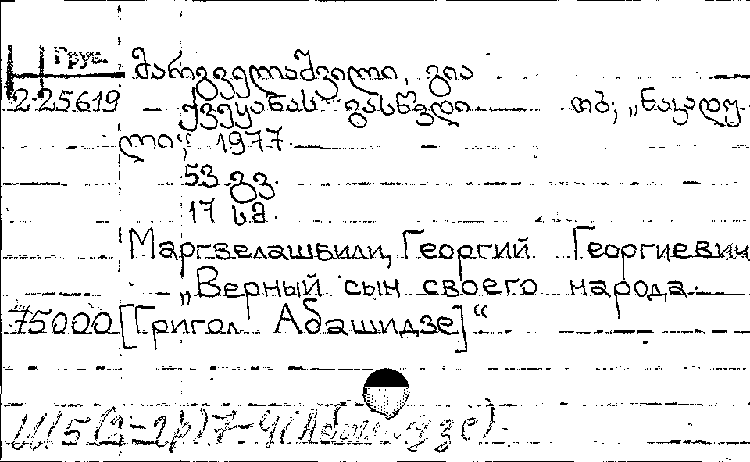 Груз.
მარგველაშვილი, გია
2-25619 ქვეყანას გასწვდი თბ; „ნაკადუ-
ლი; 1977
53 გვ.
17 ს.მ.
Маргвелашвили, Георгий Георгиевич
„Верный сын своего народа.
75000 [Григол Абашидзе]“
Ш5(2-Гр)7-4(Абашидзе).